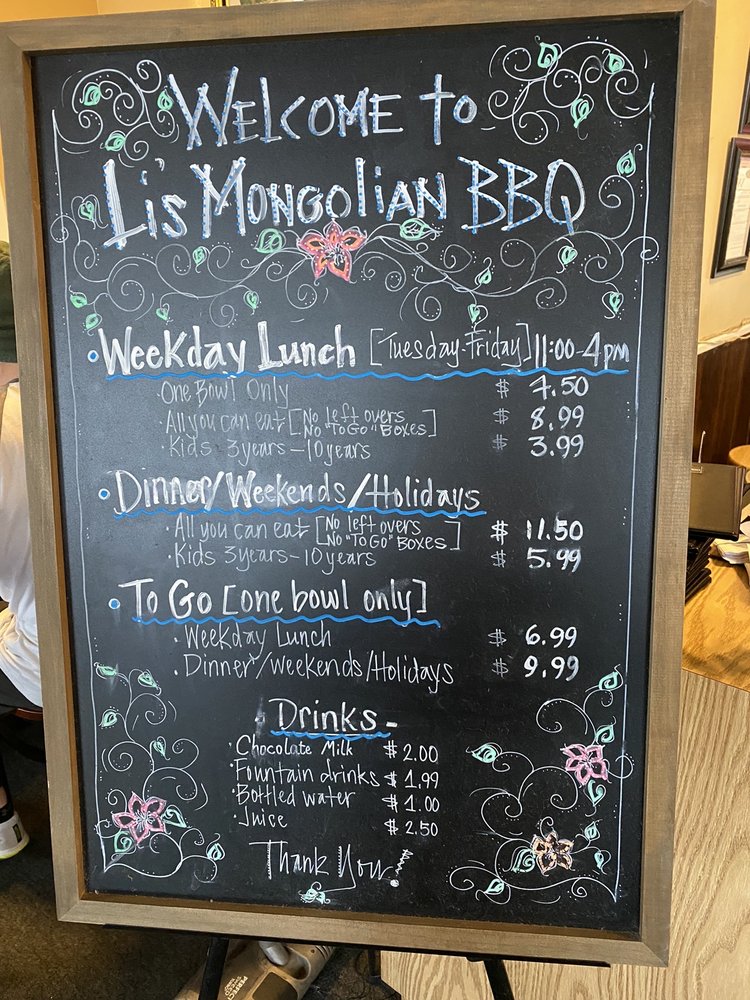 Welcome to
Li's Mongolian BBQ
Weekday Lunch [Tuesday-Friday] 11:00-4pm
One Bowl Only $ 7.50
All you can eat [No left overs
No "To Go" Boxes] $ 8.99
Kids 3years-10years $ 3.99
Dinner/Weekends/Holidays
All you can eat [No left overs
No "To Go" Boxes] $ 11.50
Kids 3years-10years $ 5.99
To Go [one bowl only]
Weekday Lunch $ 6.99
Dinner/Weekends/Holidays $ 9.99
- Drinks -
Chocolate Milk $ 2.00
Fountain drinks $ 1.99
Bottled water $ 1.00
Juice $ 2.50
Thank You!
PERFECT